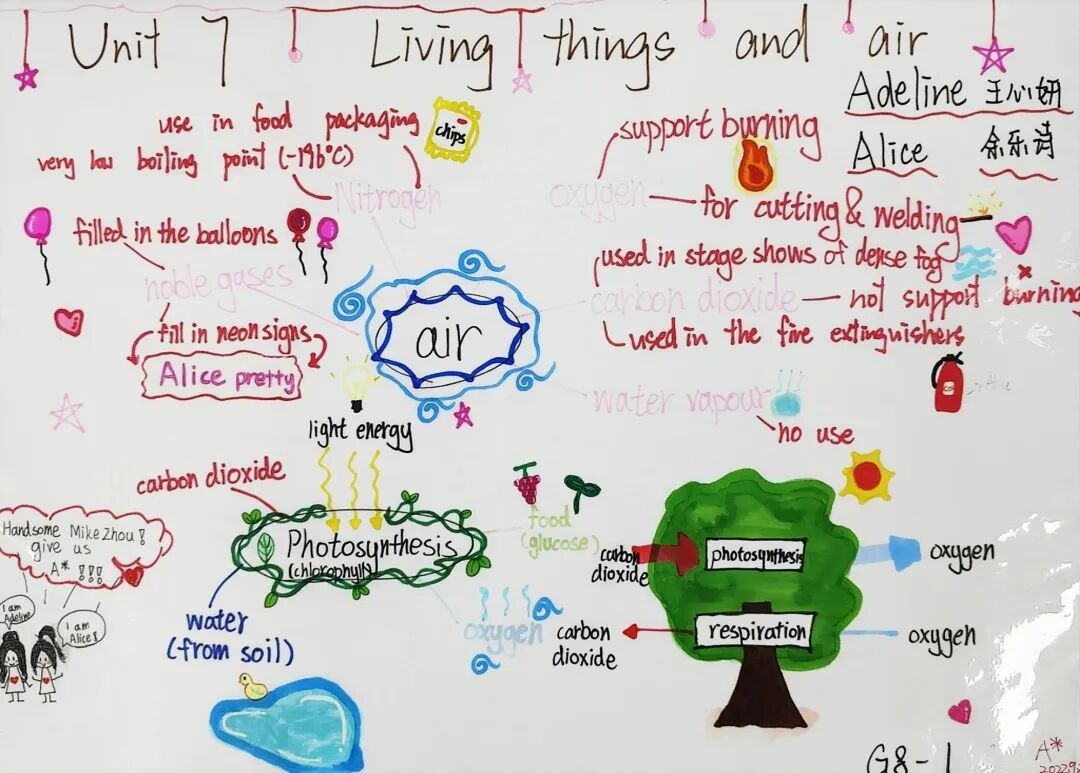 Unit 7 Living things and air
Adeline 王心妍
Alice 余乐诗
use in food packaging
chips
very low boiling point (-196°C)
Nitrogen
support burning
oxygen
for cutting & welding
filled in the balloons
noble gases
fill in neon signs
Alice pretty
air
used in stage shows of dense fog
carbon dioxide
not support burning
used in the fire extinguishers
water vapour
no use
Alice
light energy
carbon dioxide
Photosynthesis
(chlorophyll)
food
(glucose)
water
(from soil)
oxygen
carbon
dioxide
photosynthesis
oxygen
carbon
dioxide
respiration
oxygen
Handsome Mike Zhou!
give us
A* !!!
I am
Adeline!
I am
Alice!
G8-1
A*